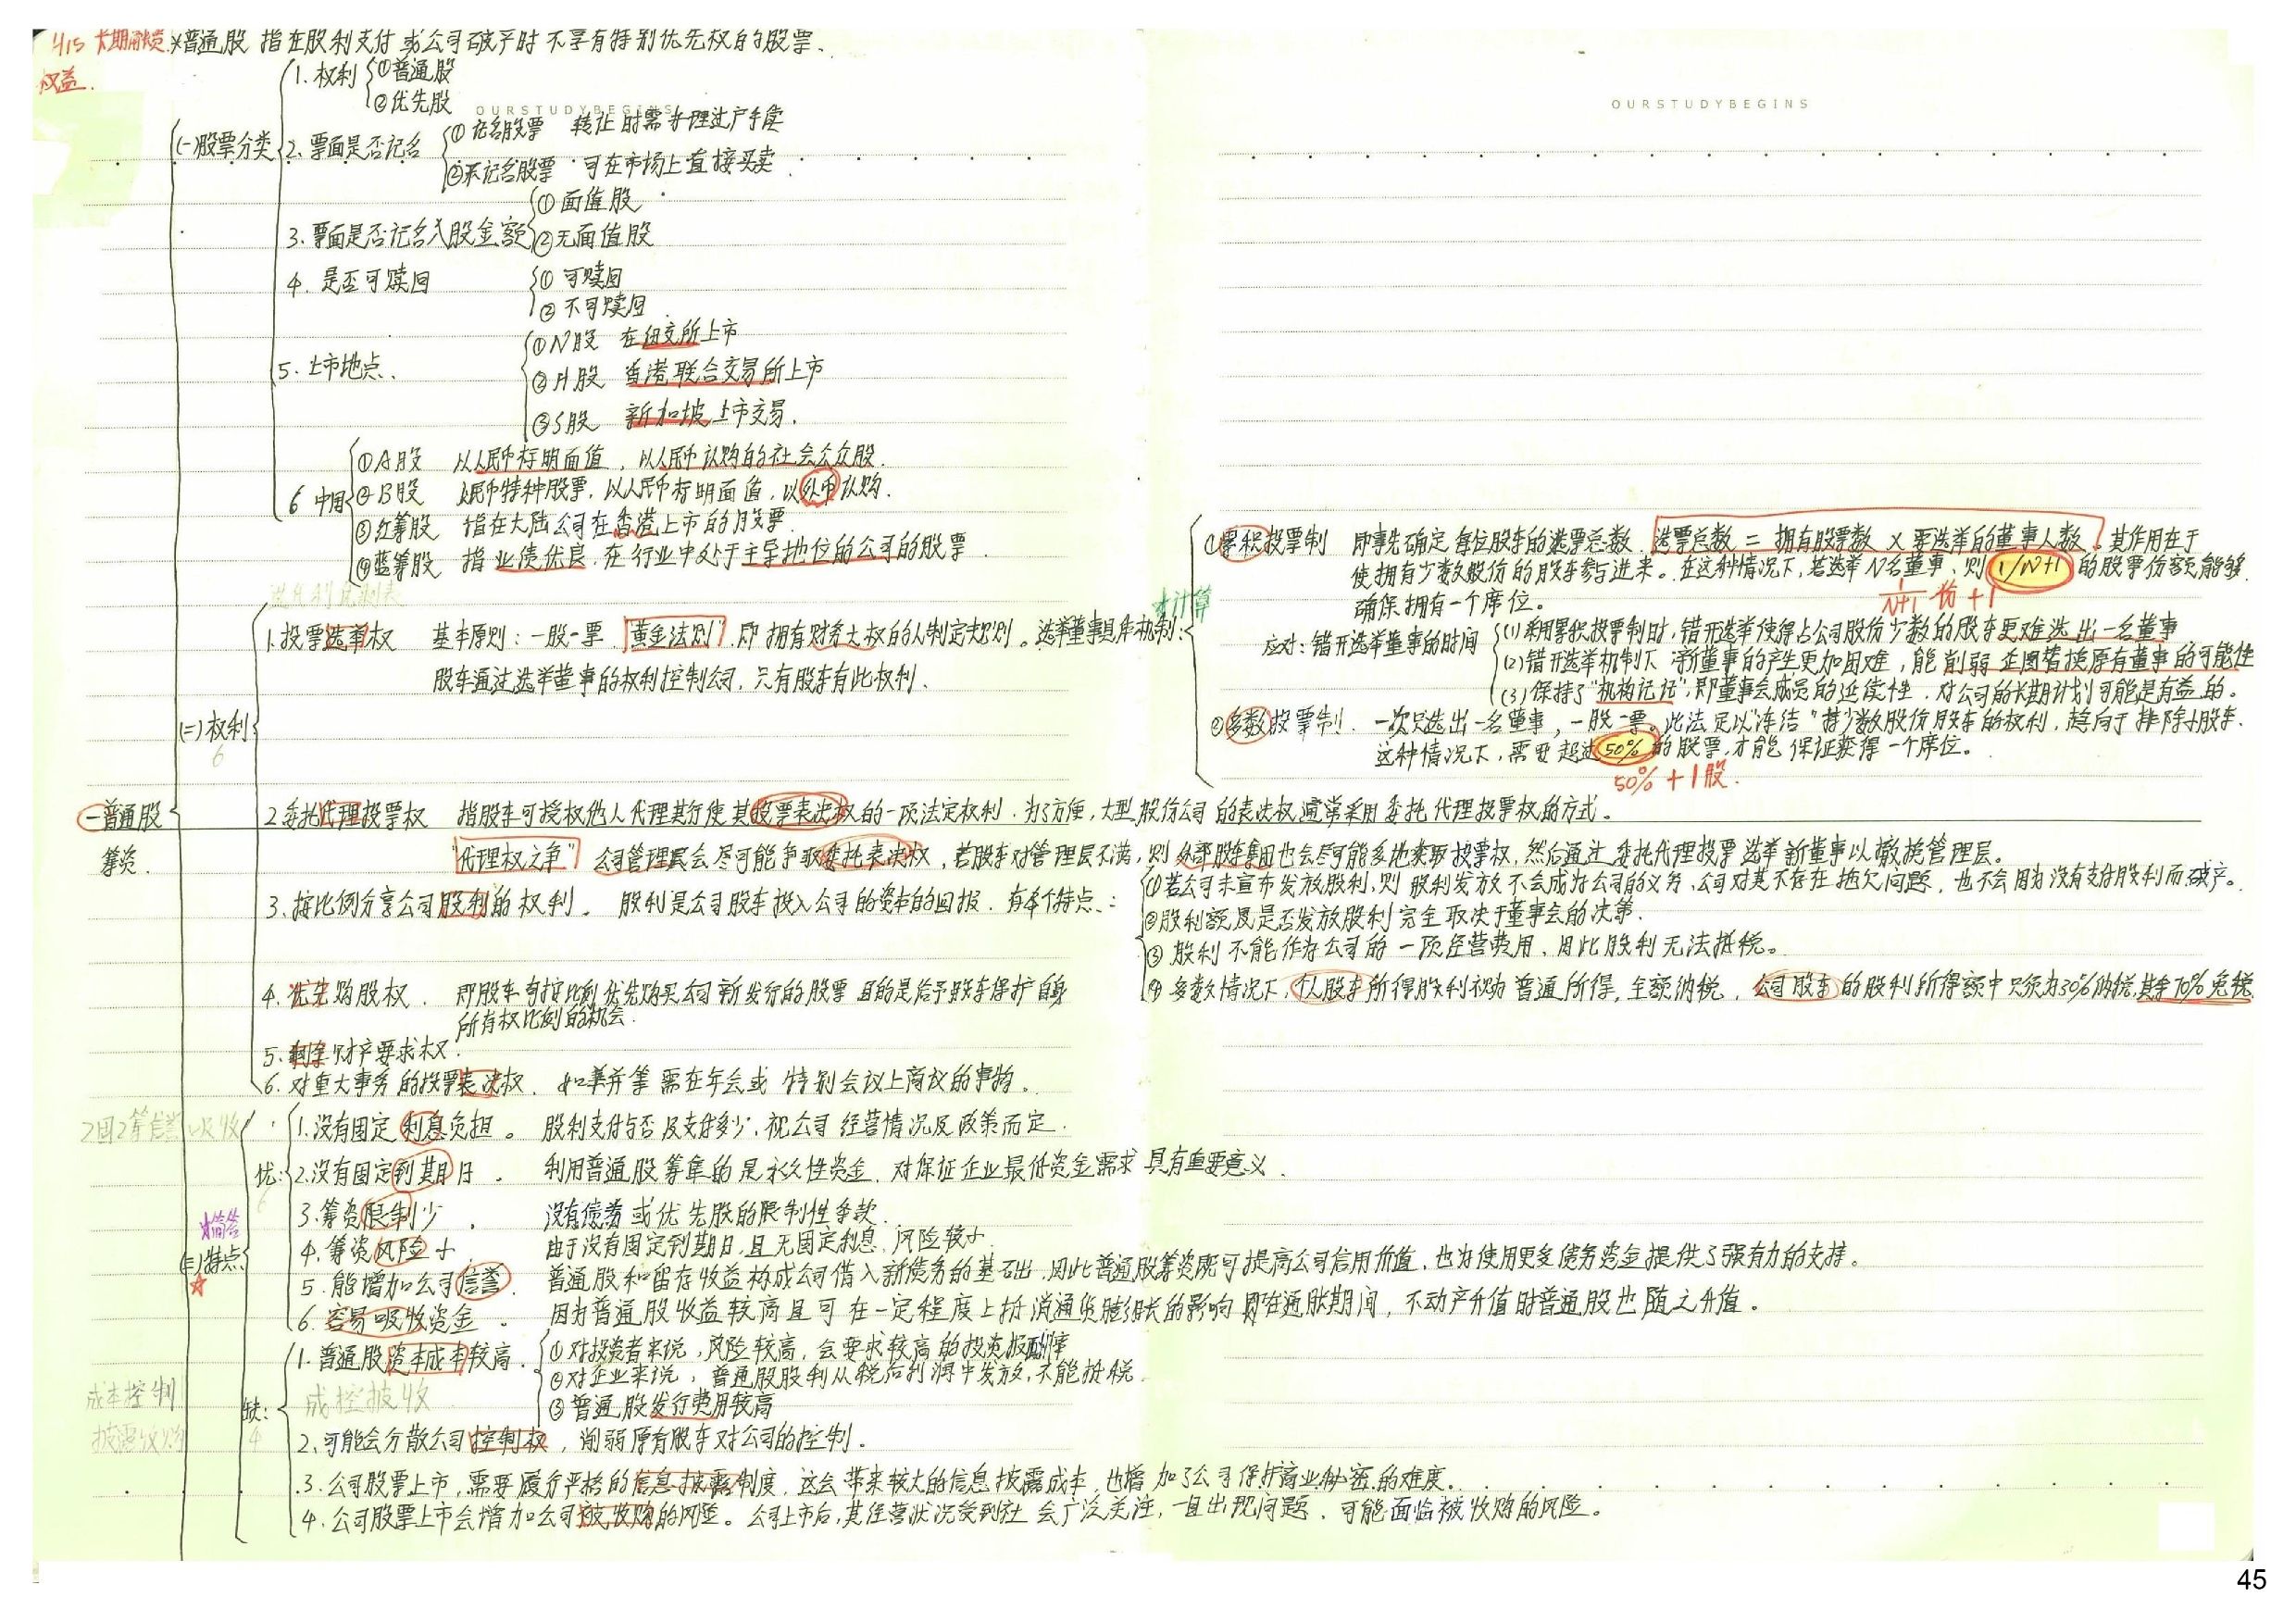 415 长期融资 *普通股 指在股利支付或公司破产时不享有特别优先权的股票、
权益.
OURSTUDYBEGINS
OURSTUDYBEGINS
(一)股票分类
1. 权利 ①普通股
②优先股
2. 票面是否记名 ① 记名股票 转让时需办理过户手续
②不记名股票 可在市场上直接买卖.
3. 票面是否记名入股金额 ① 面值股
②无面值股
4. 是否可赎回 ① 可赎回
② 不可赎回.
5. 上市地点、 ①N股 在纽交所上市
②H股 香港联合交易所上市
③S股 新加坡上市交易.
6 中国 ①A股 以人民币标明面值, 以人民币认购的社会公众股.
②B股 人民币特种股票, 以人民币标明面值, 以外币认购.
③红筹股 指在大陆公司在香港上市的股票.
④蓝筹股 指业绩优良, 在行业中处于主导地位的公司的股票.
一 普通股
筹资.
(二)权利
6
1.投票选举权 基本原则: 一股一票 "黄金法则", 即拥有财务大权的人制定规则。选举董事具体机制:
股东通过选举董事的权利控制公司, 只有股东有此权利、
*计算
①累积投票制 即事先确定每位股东的选票总数. 选票总数 = 拥有股票数 × 要选举的董事人数。其作用在于
使拥有少数股份的股东参与进来。在这种情况下, 若选举N名董事, 则 1/N+1 的股票份额能够
确保拥有一个席位。 1/N+1 份+1
应对: 错开选举董事的时间 (1)采用累积投票制时, 错开选举使得占公司股份少数的股东更难选出一名董事
(2)错开选举机制下 新董事的产生更加困难, 能削弱企图替换原有董事的可能性
(3)保持了"机构记忆", 即董事会成员的延续性. 对公司的长期计划可能是有益的。
②多数投票制. 一次只选出一名董事, 一股一票。此法足以"冻结"持少数股份股东的权利, 趋向于排除小股东.
这种情况下, 需要超过50%的股票, 才能保证获得一个席位。
50%+1股.
2.委托代理投票权 指股东可授权他人代理其行使其投票表决权的一项法定权利. 为了方便, 大型股份公司的表决权通常采用委托代理投票权的方式。
"代理权之争" 公司管理层会尽可能争取委托表决权, 若股东对管理层不满, 则外部股东集团也会尽可能多地索取投票权, 然后通过委托代理投票选举新董事以撤换管理层。
3. 按比例分享公司股利的权利。 股利是公司股东投入公司的资本的回报. 有4个特点、:
①若公司未宣布发放股利, 则股利发放不会成为公司的义务、公司对其不存在拖欠问题, 也不会因为没有支付股利而破产。
②股利额及是否发放股利完全取决于董事会的决策.
③ 股利不能作为公司的一项经营费用, 因此股利无法抵税。
④ 多数情况下, 个人股东所得股利视为普通所得, 全额纳税, 公司股东的股利所得额中只须为30%纳税, 其余70%免税.
4. 优先购股权、 即股东有按比例优先购买公司新发行的股票 目的是给予股东保护自身
所有权比例的机会.
5. 剩余财产要求权.
6. 对重大事务的投票表决权、 如兼并等需在年会或特别会议上商议的事物。
(三)特点
*简答
优: 1.没有固定利息负担。 股利支付与否及支付多少, 视公司经营情况及政策而定.
2.没有固定到期日. 利用普通股筹集的是永久性资金, 对保证企业最低资金需求具有重要意义.
3.筹资限制少. 没有债券或优先股的限制性条款.
4. 筹资风险小 由于没有固定到期日, 且无固定利息, 风险较小.
5. 能增加公司信誉. 普通股和留存收益构成公司借入新债务的基础, 因此普通股筹资既可提高公司信用价值, 也为使用更多债务资金提供了强有力的支持。
6. 容易吸收资金。 因为普通股收益较高且可在一定程度上抵消通货膨胀的影响 即在通胀期间, 不动产升值时普通股也随之升值。
缺:
4
1. 普通股资本成本较高. ①对投资者来说, 风险较高, 会要求较高的投资报酬率
②对企业来说, 普通股股利从税后利润中发放, 不能抵税.
③ 普通股发行费用较高
成控披收
成本控制
披露收购
2.可能会分散公司控制权, 削弱原有股东对公司的控制.
3. 公司股票上市, 需要履行严格的信息披露制度, 这会带来较大的信息披露成本, 也增加了公司保护商业秘密的难度。
4. 公司股票上市会增加公司被收购的风险。公司上市后, 其经营状况受到社会广泛关注, 一旦出现问题, 可能面临被收购的风险。
45